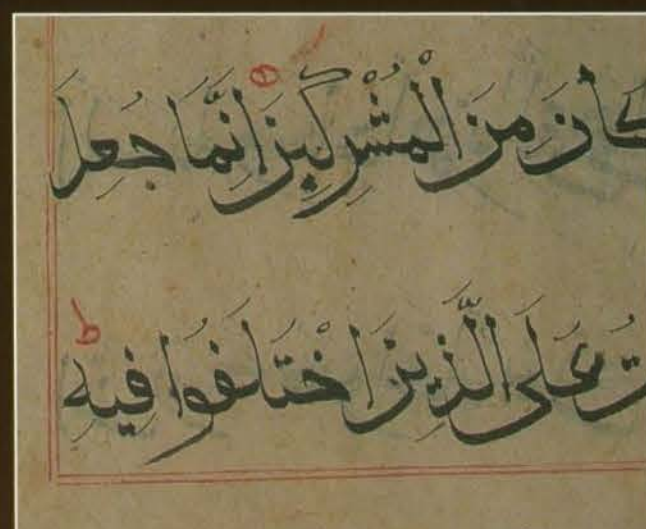 كَانَ مِنَ الْمُشْرِكِينَ إِنَّمَا جُعِلَ
عَلَى الَّذِينَ اخْتَلَفُوا فِيهِ ط